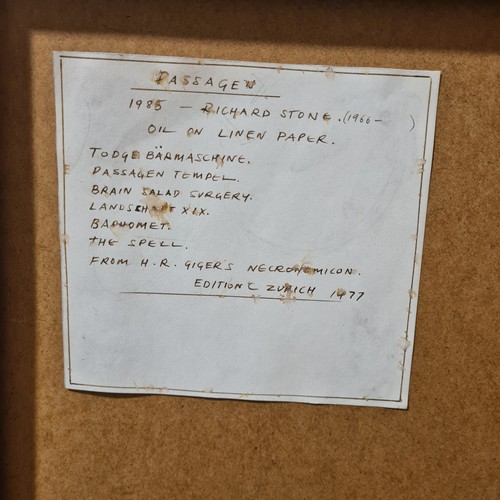 PASSAGEN
1985 - RICHARD STONE. (1966- )
OIL ON LINEN PAPER.
TODGEBÄRMASCHINE.
PASSAGEN TEMPEL.
BRAIN SALAD SURGERY.
LANDSCHAFT XIX.
BAPHOMET.
THE SPELL.
FROM H.R. GIGER'S NECRONOMICON.
EDITION C ZURICH 1977